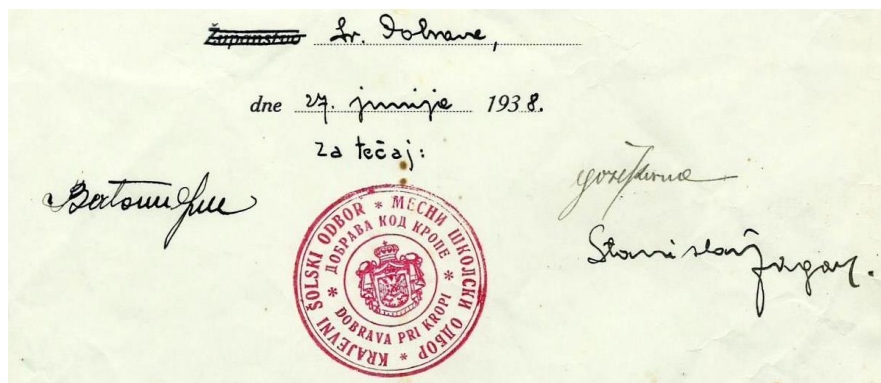 Županstvo Sr. Dobrava,
dne 27. junija 1938.
Za tečaj:
Stanislav Žagar.
KRAJEVNI ŠOLSKI ODBOR * МЕСНИ ШКОЛСКИ ОДБОР *
ДОБРАВА КОД КРОПЕ * DOBRAVA PRI KROPI *